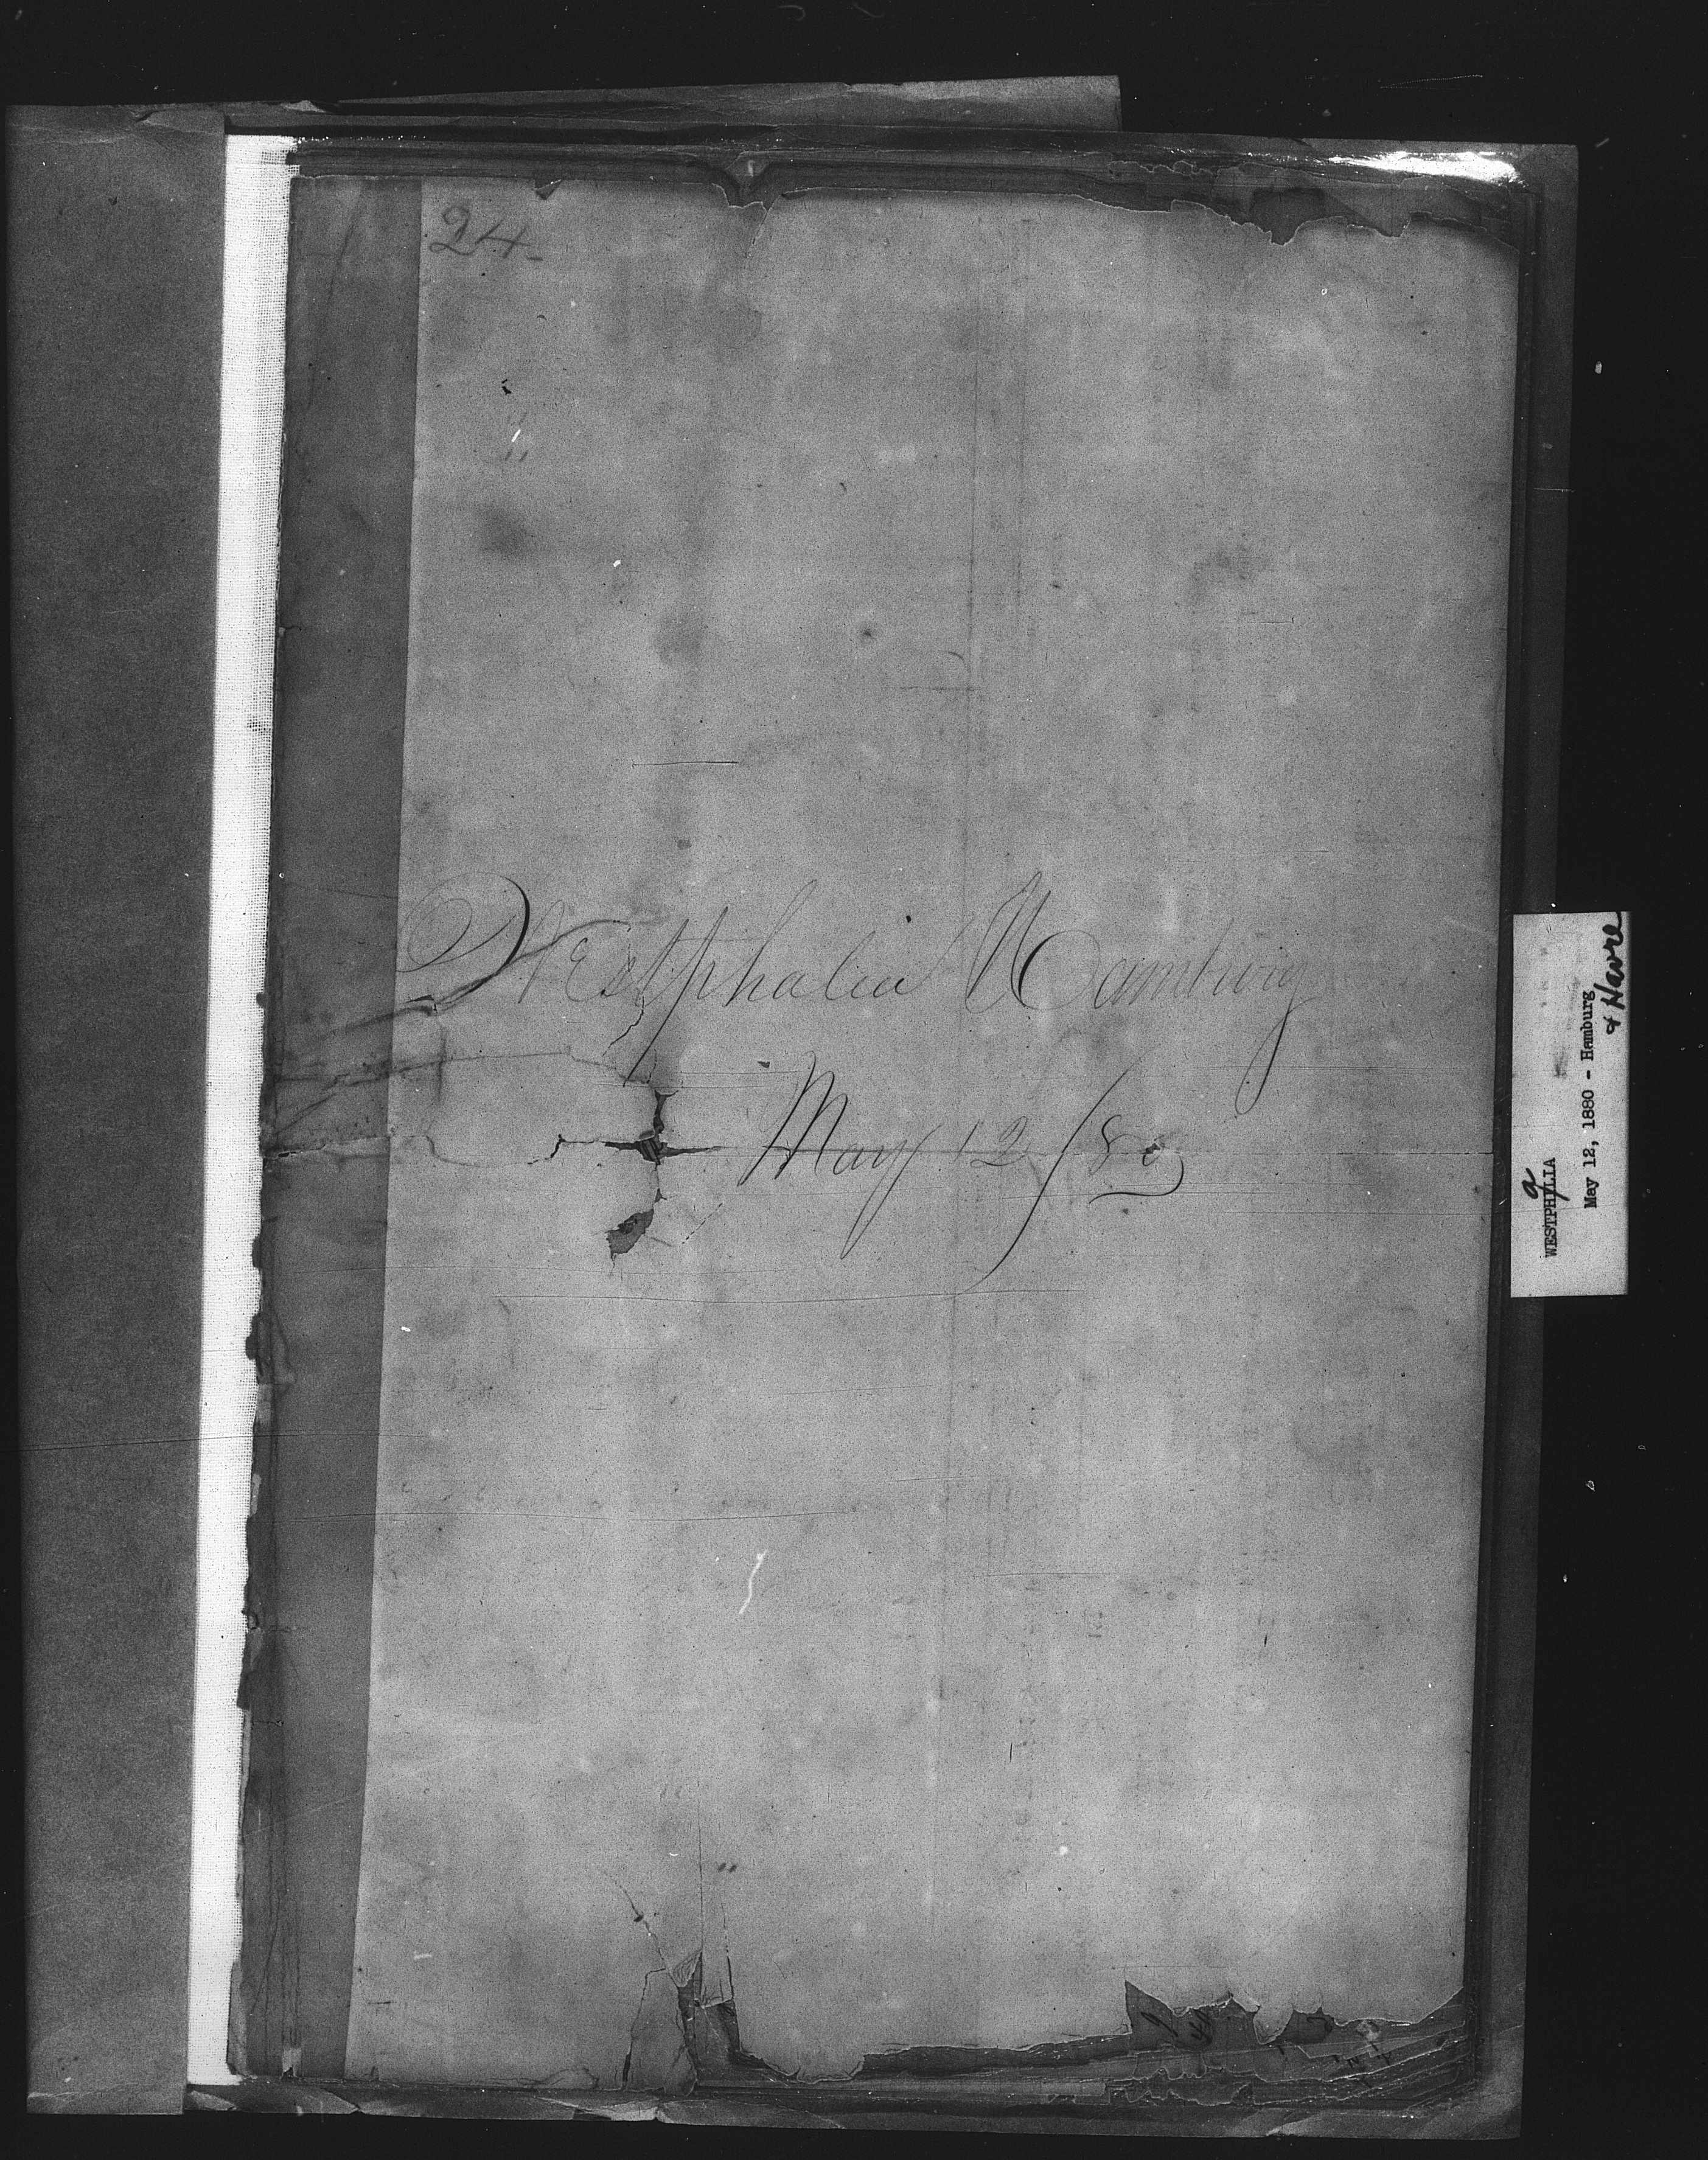 24
Westphalia Hamburg
May 12/80
a
WESTPHILIA
May 12, 1880 - Hamburg
& Havre